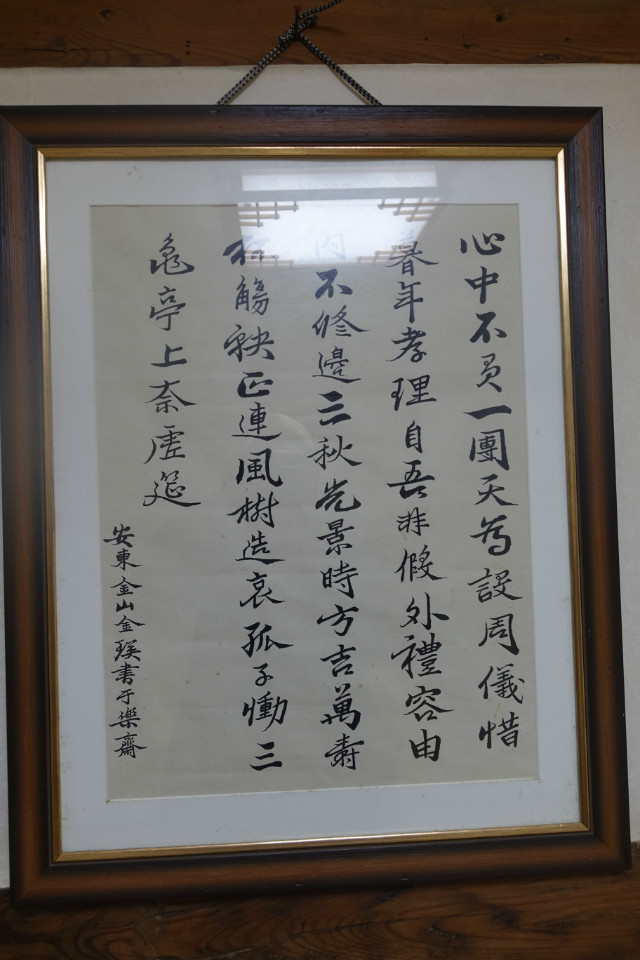 心中不負一團天為設周儀惜
暮年孝理自吾非假外禮容由
內不修邊三秋光景時方吉萬壽
稱觴秩正連風樹造哀孤子慟三
龜亭上奈虛筵
安東金山金書于樂齋